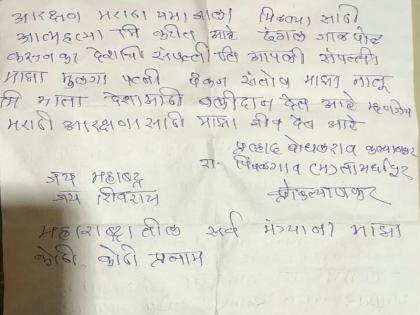 आरक्षण मराठा समाजाला मिळव्या साठी
आत्महत्या मि करीत आहे देगाल जाळ पोट
करू नका देशाची संपत्ती ती आपली संपत्ती
माझा मुलगा पत्नी संतोष माझा
मि माता देशासाठी बलीदान देत आहे म्हणजेच
मराठी आरक्षणासाठी माझा जीव देत आहे
प्रल्हाद कल्याणकर
रा. पिंपळगाव (म) ता अर्धापूर
जय महाराष्ट्र
जय शिवराय
महाराष्ट्रातील सर्व मंत्र्यांना माझा
कोटी कोटी प्रणाम